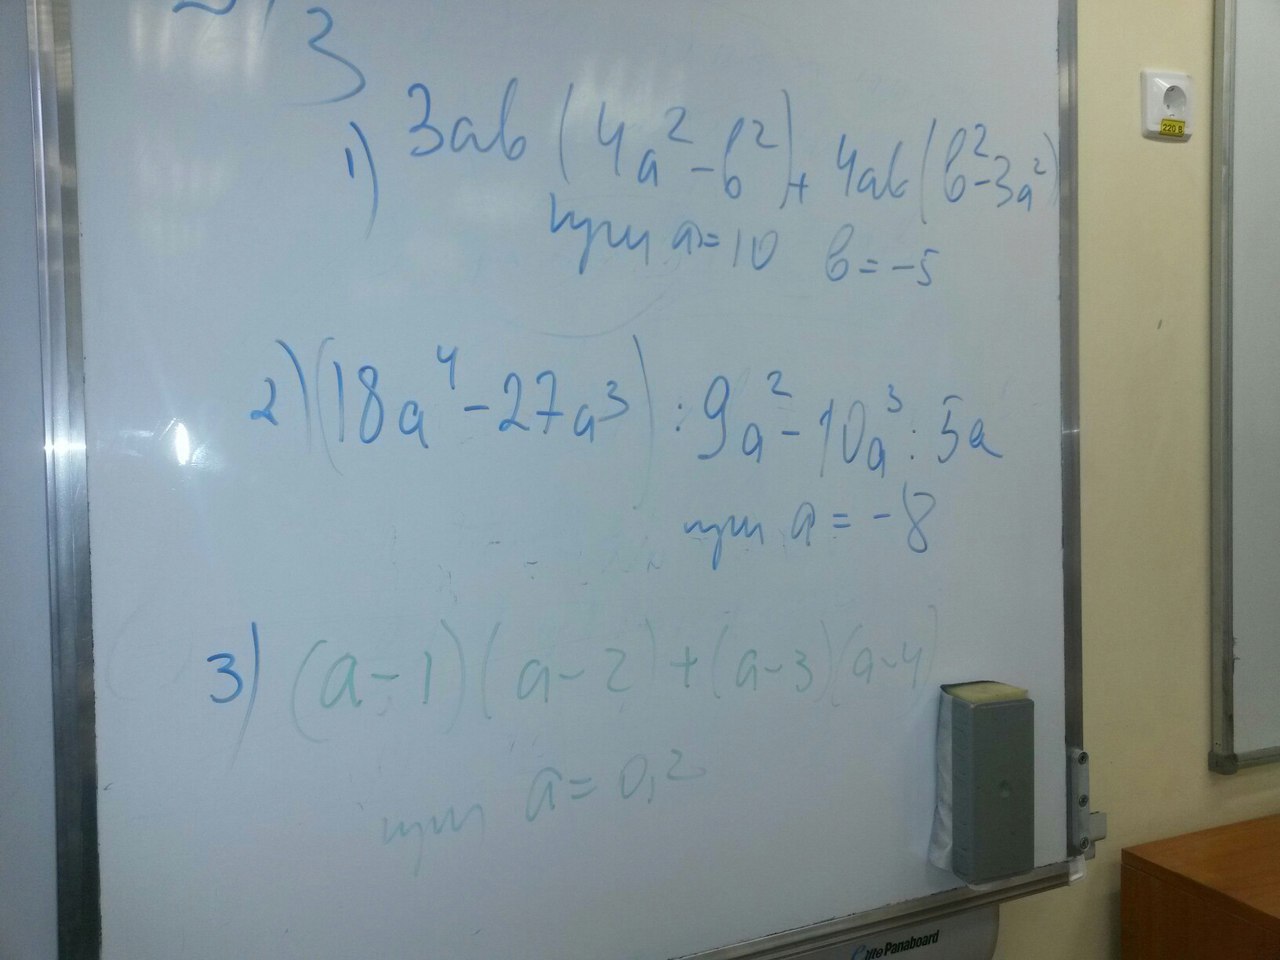 3
1) 3ab(4a²-b²)+4ab(b²-3a²)
при a=10 b=-5
2)(18a⁴-27a³):9a²-10a³:5a
при a=-8
3) (a-1)(a-2)+(a-3)(a-4)
при a=0,2
220 В
elite Panaboard